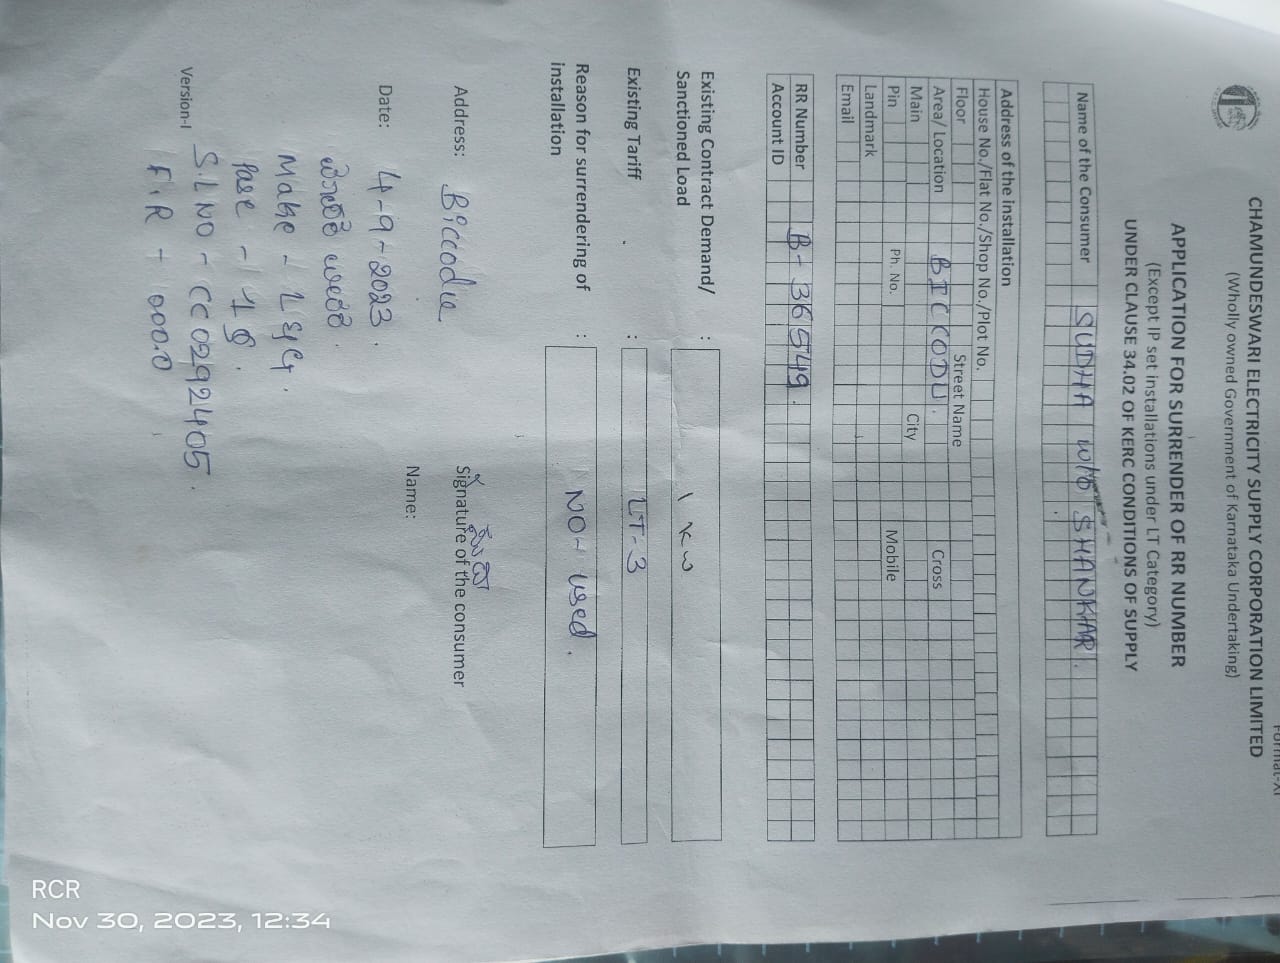 Format-XI
CHAMUNDESWARI ELECTRICITY SUPPLY CORPORATION LIMITED
(Wholly owned Government of Karnataka Undertaking)
APPLICATION FOR SURRENDER OF RR NUMBER
(Except IP set installations under LT Category)
UNDER CLAUSE 34.02 OF KERC CONDITIONS OF SUPPLY
Name of the Consumer SUDHA W/o SHANKAR.
Address of the installation
House No./Flat No./Shop No./Plot No.
Floor Street Name
Area/ Location BICCODU. Cross
Main City
Pin Ph. No. Mobile
Landmark
Email
RR Number B-36549.
Account ID
Existing Contract Demand/ : 1 KW
Sanctioned Load
Existing Tariff : LT-3
Reason for surrendering of : NO- used.
installation
Address: Biccodu Signature of the consumer
Date: 4-9-2023. Name:
Make - L&G.
S.LNO - CC0292405.
F.R - 000.0
Version-I
RCR
Nov 30, 2023, 12:34